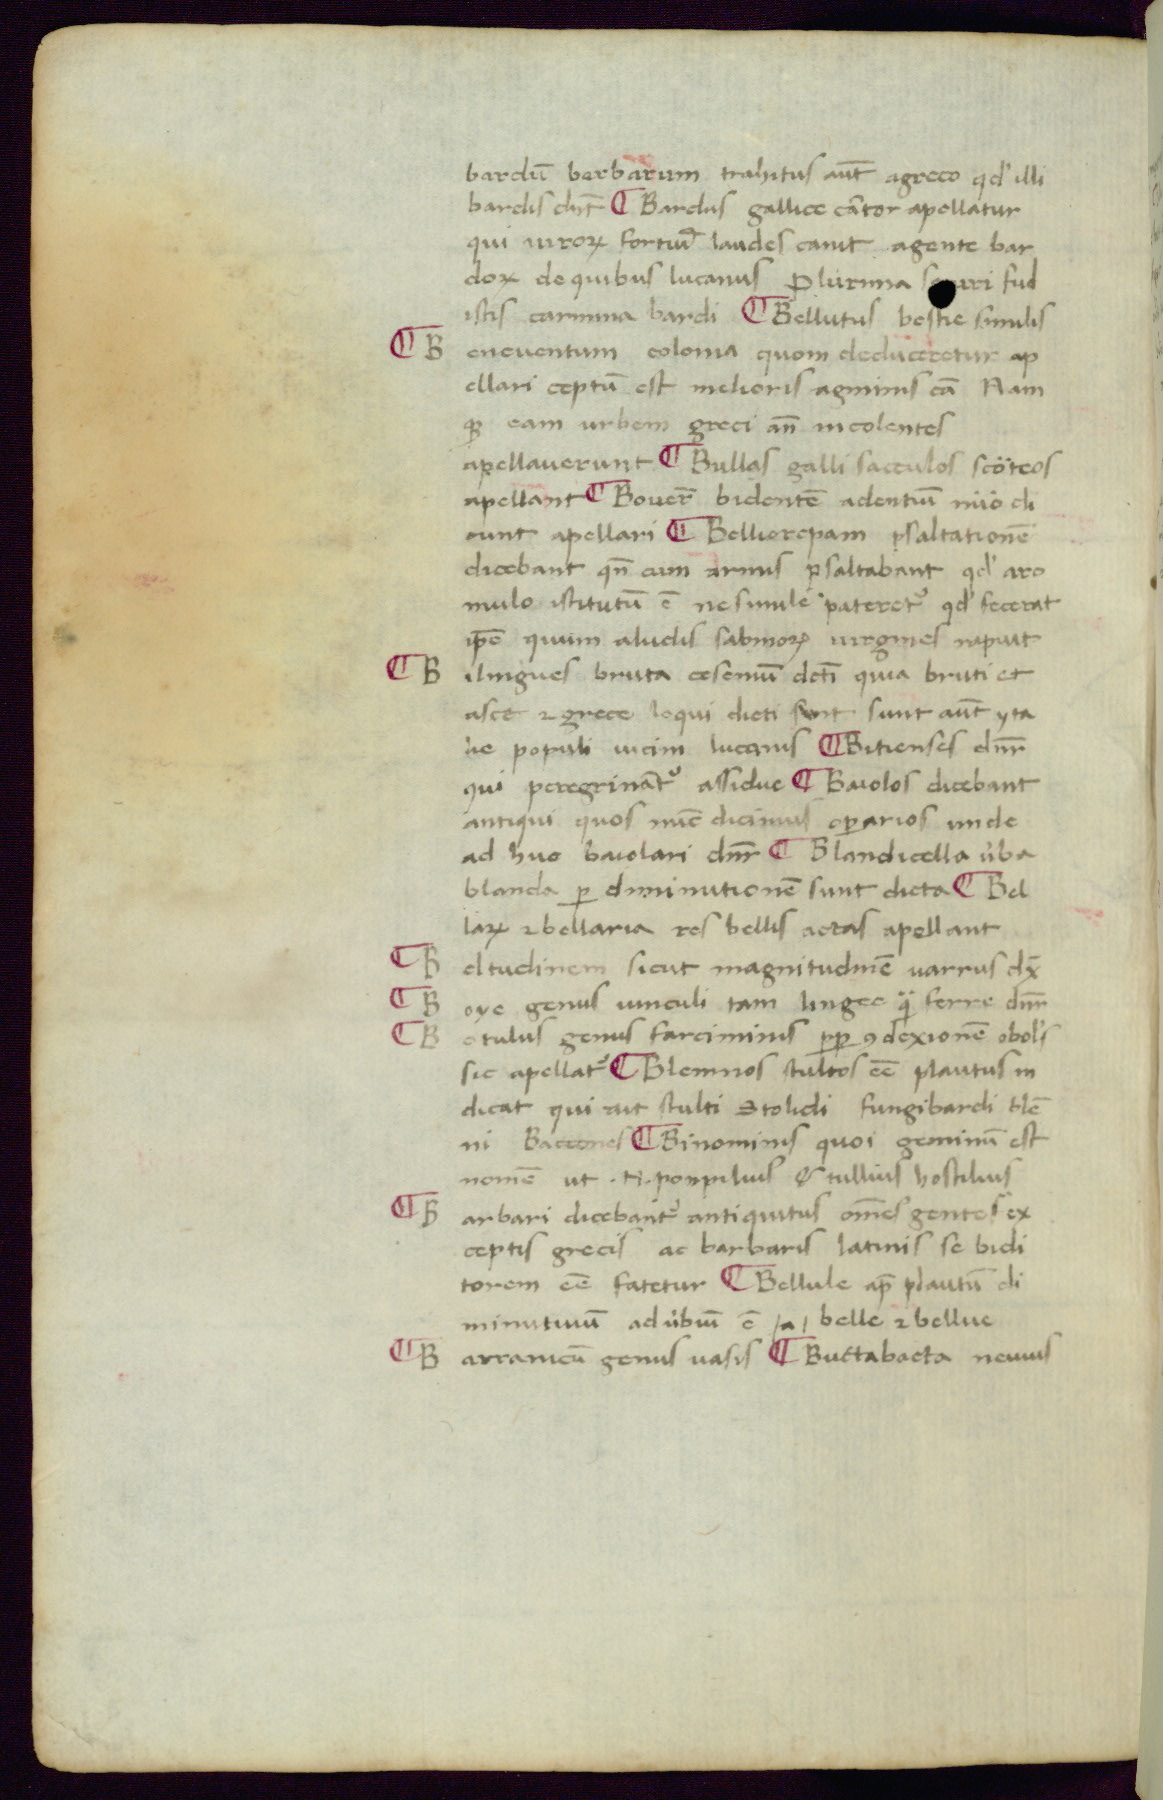 bardū barbarum trahitus aūt agreco qd' illi
bardis dn̄t ¶ Bardus gallice cātor apellatur
qui uiroꝝ fortiū laudes canit agente bar
doꝝ de quibus lucanus Plurima se uri fud
istis carmina bardi ¶ Bellutus bestie similis
¶ B eneuentum colonia quom deduceretur ap
ellari ceptū est melioris agminis cā Nam
eam urbem greci an̄ incolentes
apellauerunt ¶ Bullas galli sacculos scorteos
apellant ¶ Bouer̄ bidentē adentiū nūo di
cunt apellari ¶ Bellicrepam psaltationē
dicebant qn̄ cum armis psaltabant qd' aro
mulo istitutū ē ne simile pateret᷒ qd' fecerat
ip̄e quum aludis sabinoꝝ uirgines rapuit
¶ B ilingues bruta cesenniū dcti quia bruti et
asce ⁊ grece loqui dicti sunt sunt aūt yta
lie populi uicini lucanis ¶ Bitienses dn̄r
qui peregrinant᷒ assidue ¶ Baiolos dicebant
antiqui quos nūc dicimus oꝑarios unde
ad huc baiolari dn̄r ¶ Blandicella ūba
blanda ꝑ diminutionē sunt dicta ¶ Bel
laꝝ ⁊ bellaria res bellis actas apellant
¶ B eltudinem sicut magnitudinē varrus dx̄
¶ B oye genus uinculi tam lingee q̄ ferre dn̄r
¶ B otulus genus farciminis ꝓꝑ ꝯdexionē obol's
sic apellat᷒ ¶ Blennos stultos eē plautus in
dicat qui ait stulti Stolidi fungi bardi blē
ni Baccones ¶ Binominis quoi geminū est
nomē ut ·N· ponpilius & tullius hostilius
¶ B arbari dicebant᷒ antiquitus om̄es gentes ex
ceptis grecis ac barbaris latinis se bidi
torem eē fatetur ¶ Bellule ap̄ plautū di
minutiuū ad ūbiū ē /a/ belle ⁊ bellue
¶ B arranicū genus uasis ¶ Buttabacta neuius